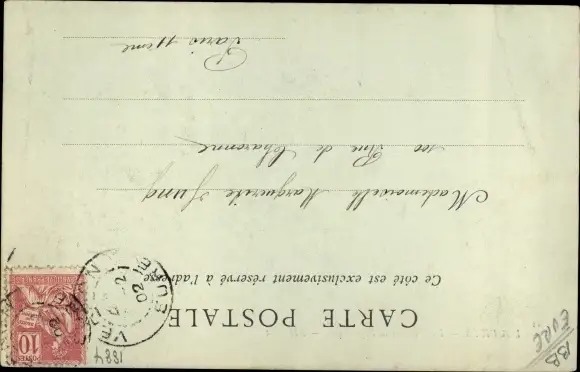 CARTE POSTALE
Ce côté est exclusivement réservé à l'adresse
Mademoiselle Marguerite Jung
100 Rue de Charonne
Paris 11eme
10
EURE
02
1884
BB
EURE